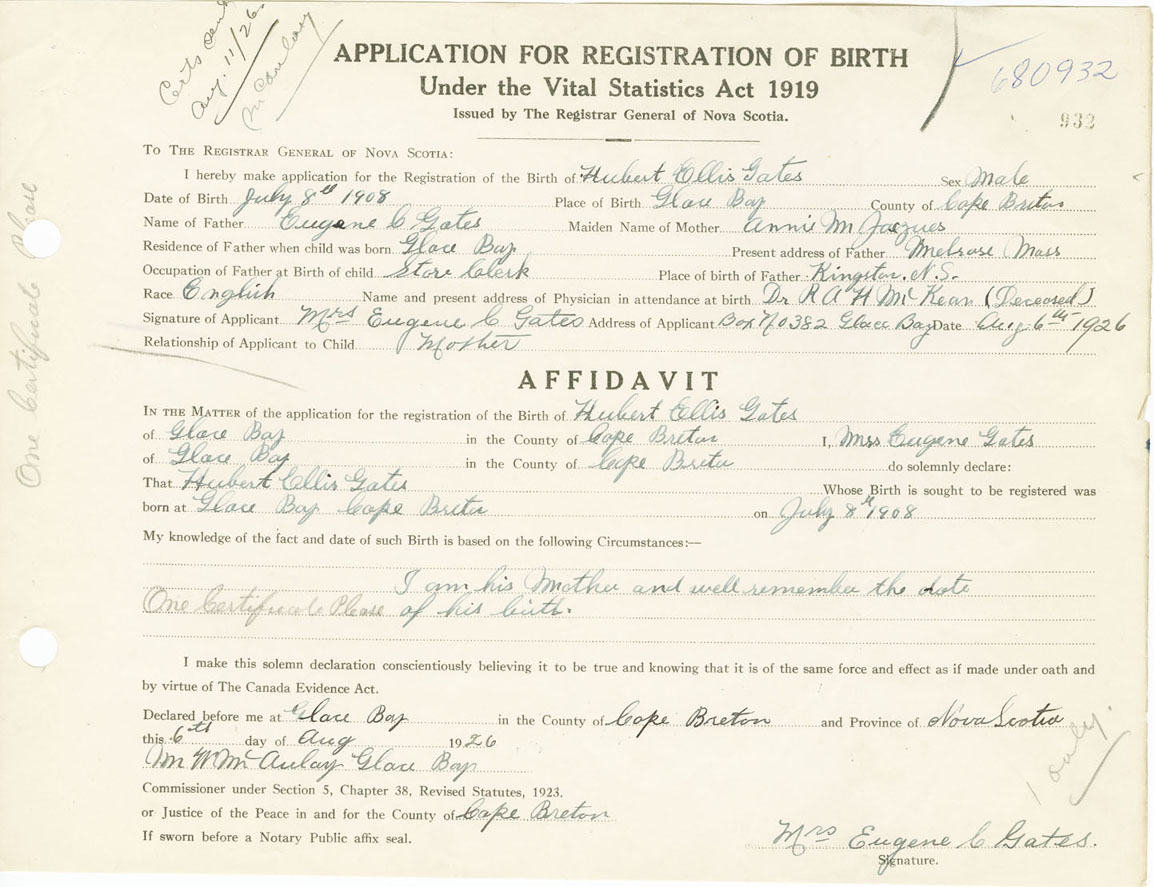 Certs sent
Aug. 11/26
McCaulay
APPLICATION FOR REGISTRATION OF BIRTH
Under the Vital Statistics Act 1919
Issued by The Registrar General of Nova Scotia.
680932
932
TO THE REGISTRAR GENERAL OF NOVA SCOTIA:
I hereby make application for the Registration of the Birth of Hubert Ellis Gates Sex Male
Date of Birth July 8th 1908 Place of Birth Glace Bay County of Cape Breton
Name of Father Eugene C Gates Maiden Name of Mother Annie M Jacques
Residence of Father when child was born Glace Bay Present address of Father Melrose Mass
Occupation of Father at Birth of child Store Clerk Place of birth of Father Kingston. N.S.
Race English Name and present address of Physician in attendance at birth Dr R A H McKean (Deceased)
Signature of Applicant Mrs Eugene C Gates Address of Applicant Box No 382 Glace Bay Date Aug 6th 1926
Relationship of Applicant to Child Mother
One Certificate Please
AFFIDAVIT
IN THE MATTER of the application for the registration of the Birth of Hubert Ellis Gates
of Glace Bay in the County of Cape Breton I, Mrs Eugene Gates
of Glace Bay in the County of Cape Breton do solemnly declare:
That Hubert Ellis Gates Whose Birth is sought to be registered was
born at Glace Bay Cape Breton on July 8th 1908
My knowledge of the fact and date of such Birth is based on the following Circumstances:—
I am his Mother and well remember the date
One Certificate Please of his birth.
I make this solemn declaration conscientiously believing it to be true and knowing that it is of the same force and effect as if made under oath and
by virtue of The Canada Evidence Act.
Declared before me at Glace Bay in the County of Cape Breton and Province of Nova Scotia
this 6th day of Aug 1926
1 only.
M W McAulay Glace Bay
Commissioner under Section 5, Chapter 38, Revised Statutes, 1923.
or Justice of the Peace in and for the County of Cape Breton
If sworn before a Notary Public affix seal.
Mrs Eugene C Gates.
Signature.